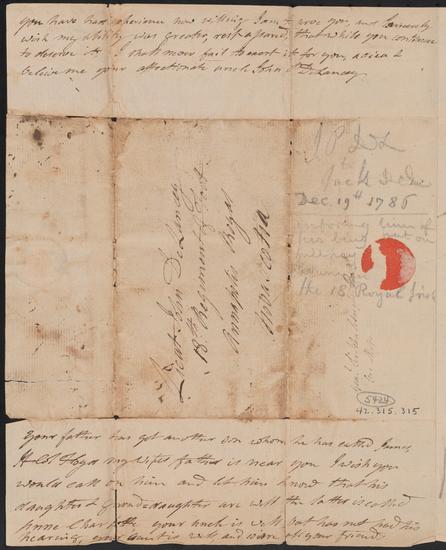 You have had experience how willing I am to serve you, and sincerely
wish my ability was greater, rest assured, that while you continue
to deserve it, I shall never fail to exert it for you, adieu &
believe me your affectionate uncle John P DeLancey
Lieut John DeLancey
18th Regiment of Foot
Annapolis Royal
Nova Scotia
J. P. DeL
to
Jack DeL
Dec. 19th 1786
informing him of
his being put on
full pay
in
the 18 Royal Irish
5424
42.315.315
Your father has got another son whom he has called James,
my wifes father is near you I wish you
would call on him and let him know that his
daughter & Grand daughter are well the latter is called
Anne Charlotte your uncle is well but has not had his
hearing, your aunt is well, and
your friend